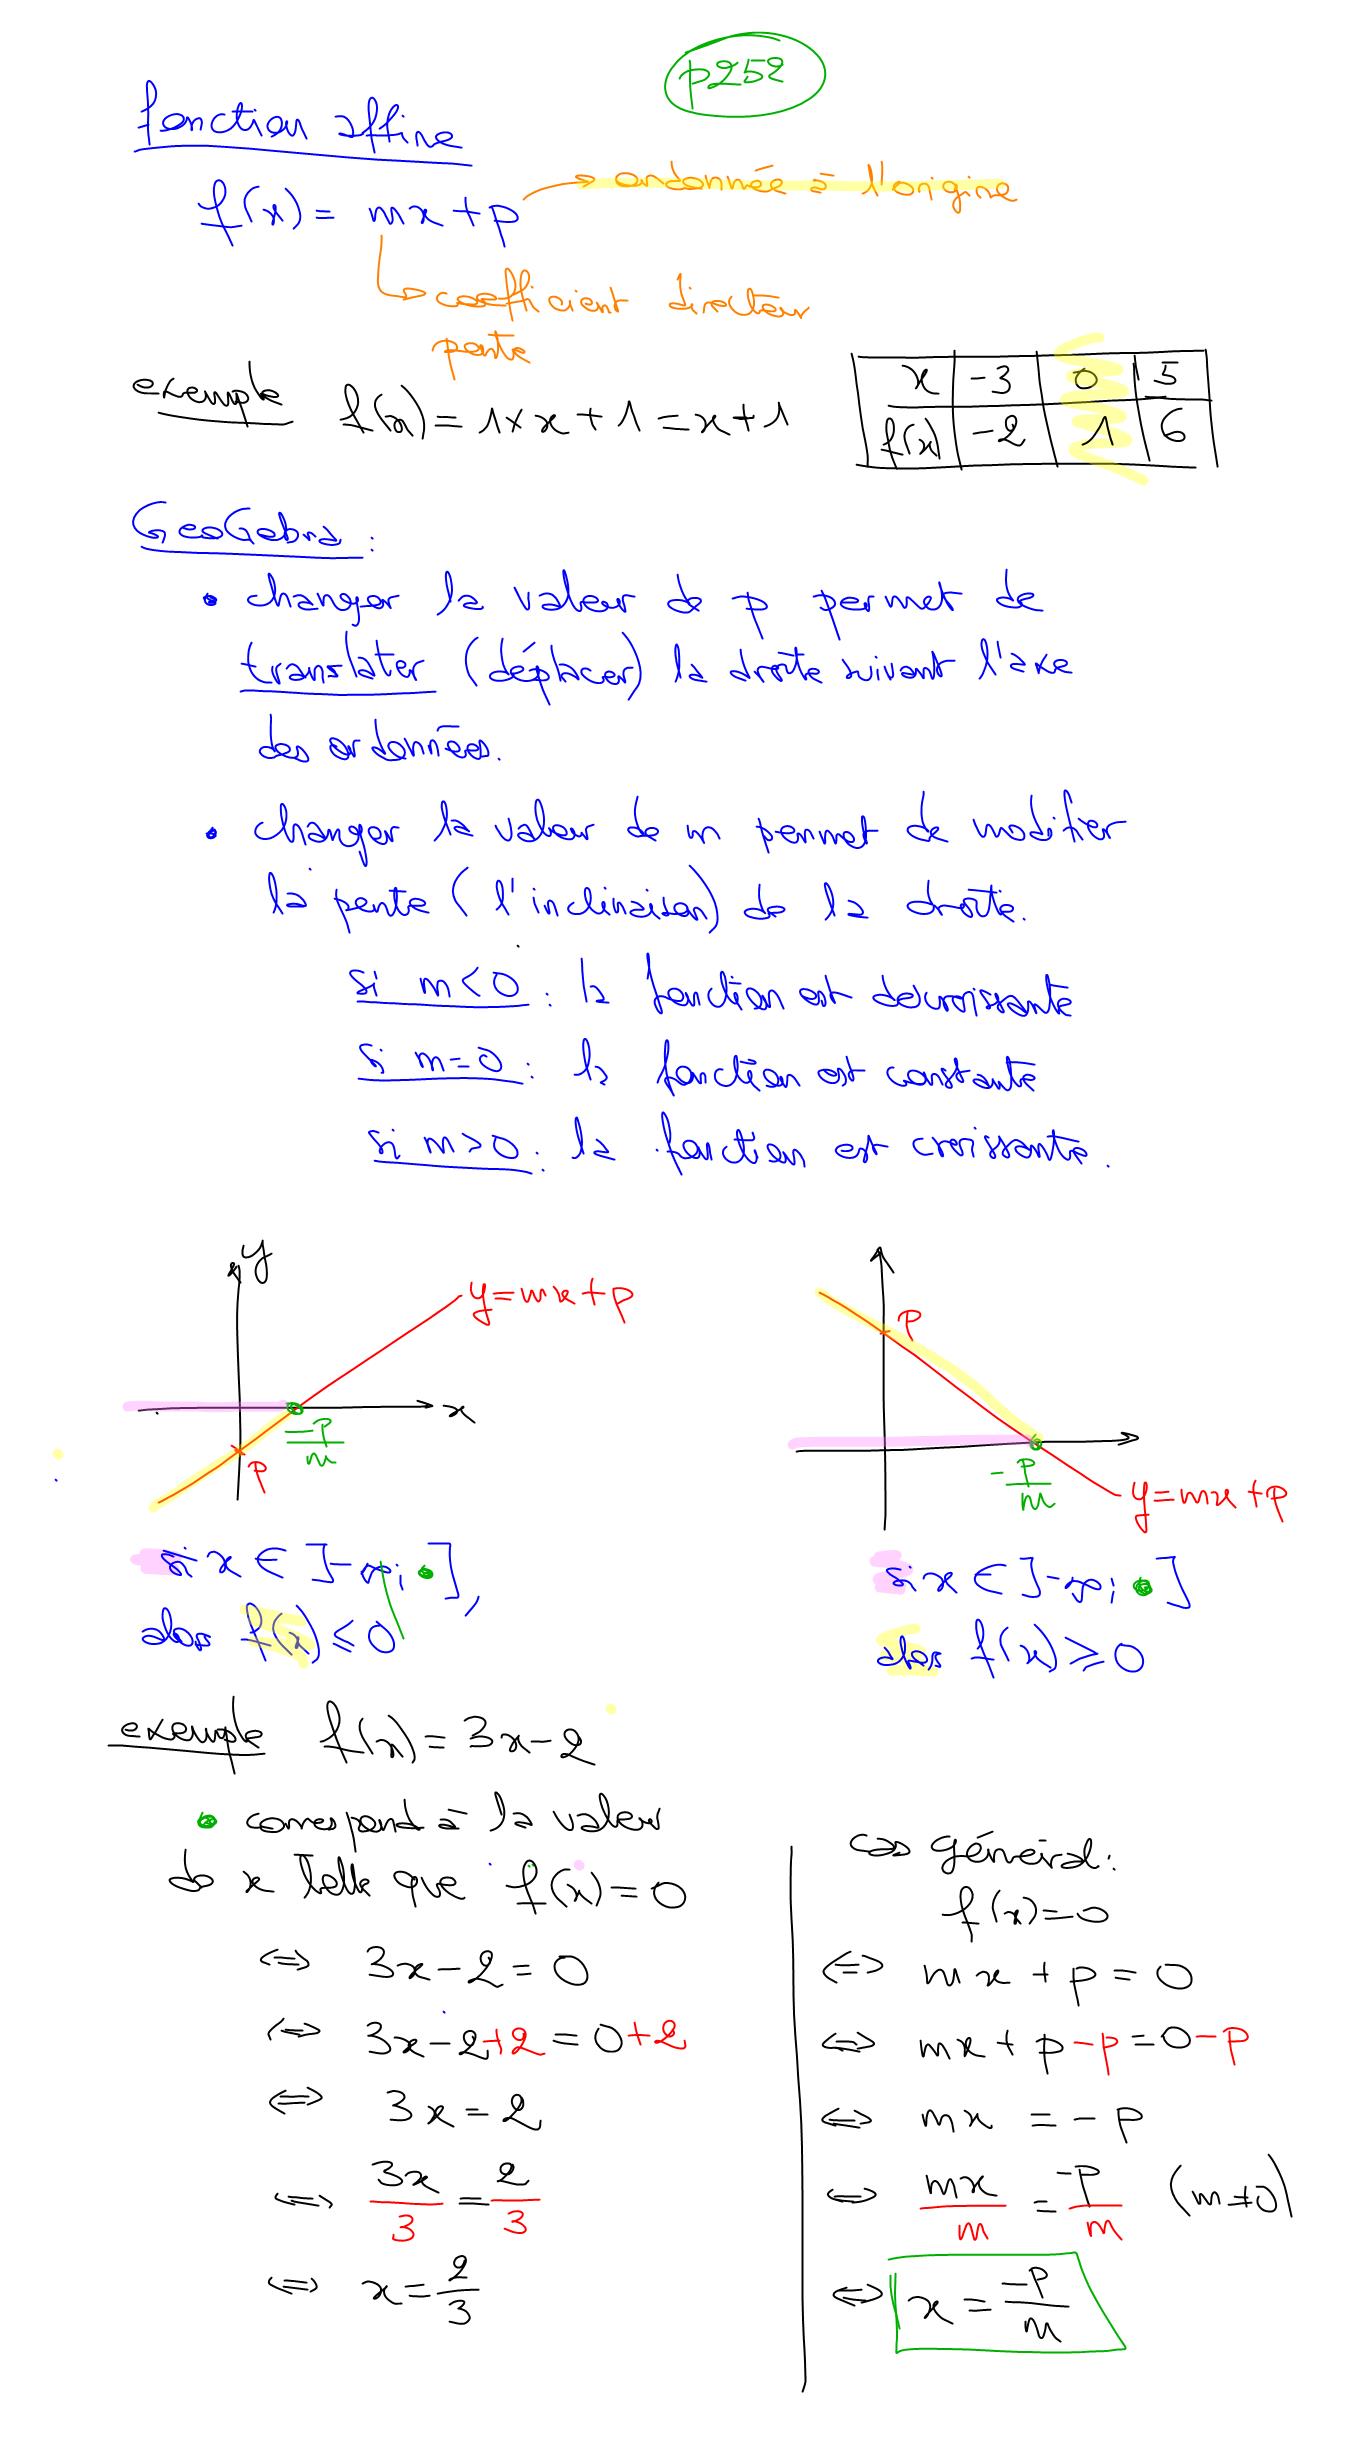 p252
fonction affine
f(x) = mx + p → ordonnée à l'origine
coefficient directeur
pente
exemple f(x) = 1 × x + 1 = x + 1
x -3 0 5
f(x) -2 1 6
GeoGebra :
• changer la valeur de p permet de
translater (déplacer) la droite suivant l'axe
des ordonnées.
• changer la valeur de m permet de modifier
la pente (l'inclinaison) de la droite.
si m < 0 : la fonction est décroissante
si m = 0 : la fonction est constante
si m > 0 : la fonction est croissante.
y
y = mx + p
x
-p/m
p
p
-p/m
y = mx + p
si x ∈ ]-∞; •],
alors f(x) ≤ 0
si x ∈ ]-∞; •]
alors f(x) ≥ 0
exemple f(x) = 3x - 2
• correspond à la valeur
de x telle que f(x) = 0
⇔ 3x - 2 = 0
⇔ 3x - 2 + 2 = 0 + 2
⇔ 3x = 2
⇔ 3x/3 = 2/3
⇔ x = 2/3
cas général :
f(x) = 0
⇔ mx + p = 0
⇔ mx + p - p = 0 - p
⇔ mx = -p
⇔ mx/m = -p/m (m ≠ 0)
⇔ x = -p/m